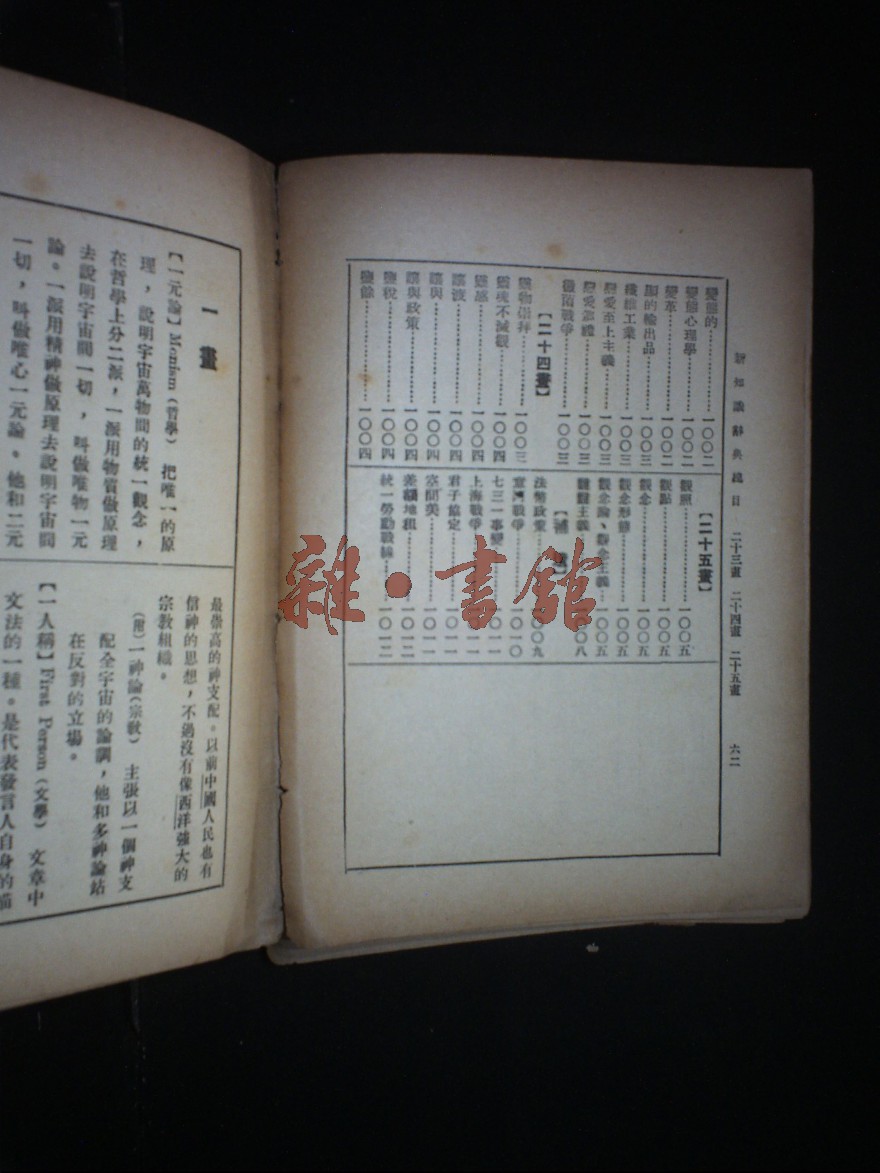 新知識辭典總目 二十三畫 二十四畫 二十五畫 六二
變態的…………一〇〇二
變態心理學…………一〇〇二
變革…………一〇〇二
的輸出品…………一〇〇三
纖維工業…………一〇〇三
戀愛至上主義…………一〇〇三
戀愛悲…………一〇〇三
戰爭…………一〇〇三
【二十四畫】
靈物崇拜…………一〇〇三
靈魂不滅觀…………一〇〇四
靈感…………一〇〇四
讓渡…………一〇〇四
讓與…………一〇〇四
讓與政策…………一〇〇四
鹽稅…………一〇〇四
鹽餘…………一〇〇四
【二十五畫】
觀照…………一〇〇五
觀點…………一〇〇五
觀念…………一〇〇五
觀念形態…………一〇〇五
觀念論、觀念主義…一〇〇五
主義…………〇〇八
【補遺】
法幣政策…………〇〇九
戰爭…………一〇一〇
七三一事變…………一〇一一
上海戰爭…………一〇一一
君子協定…………一〇一一
空間美…………一〇一一
差額地租…………一〇一二
統一勞動戰線…………一〇一二
一畫
【一元論】Monism(哲學) 把唯一的原
理,說明宇宙萬物間的統一觀念,
在哲學上分二派,一派用物質做原理
去說明宇宙間一切,叫做唯物一元
論。一派用精神做原理去說明宇宙間
一切,叫做唯心一元論。他和二元
最崇高的神支配。以前中國人民也有
信神的思想,不過沒有像西洋強大的
宗教組織。
(附)一神論(宗教) 主張以一個神支
配全宇宙的論調,他和多神論站
在反對的立場。
【一人稱】First Person(文學) 文章中
文法的一種。是代表發言人自身的描
雜·書館